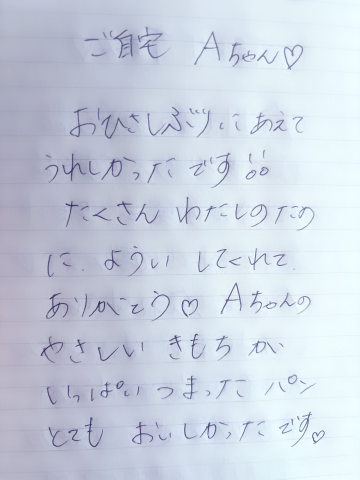 ご自宅 Aちゃん♡
おひさしぶりにあえて
うれしかったです!!
たくさん わたしのため
に、ようい してくれて、
ありがとう♡ Aちゃんの
やさしい きもち が
いっぱい つまった パン
とても おいしかったです♡